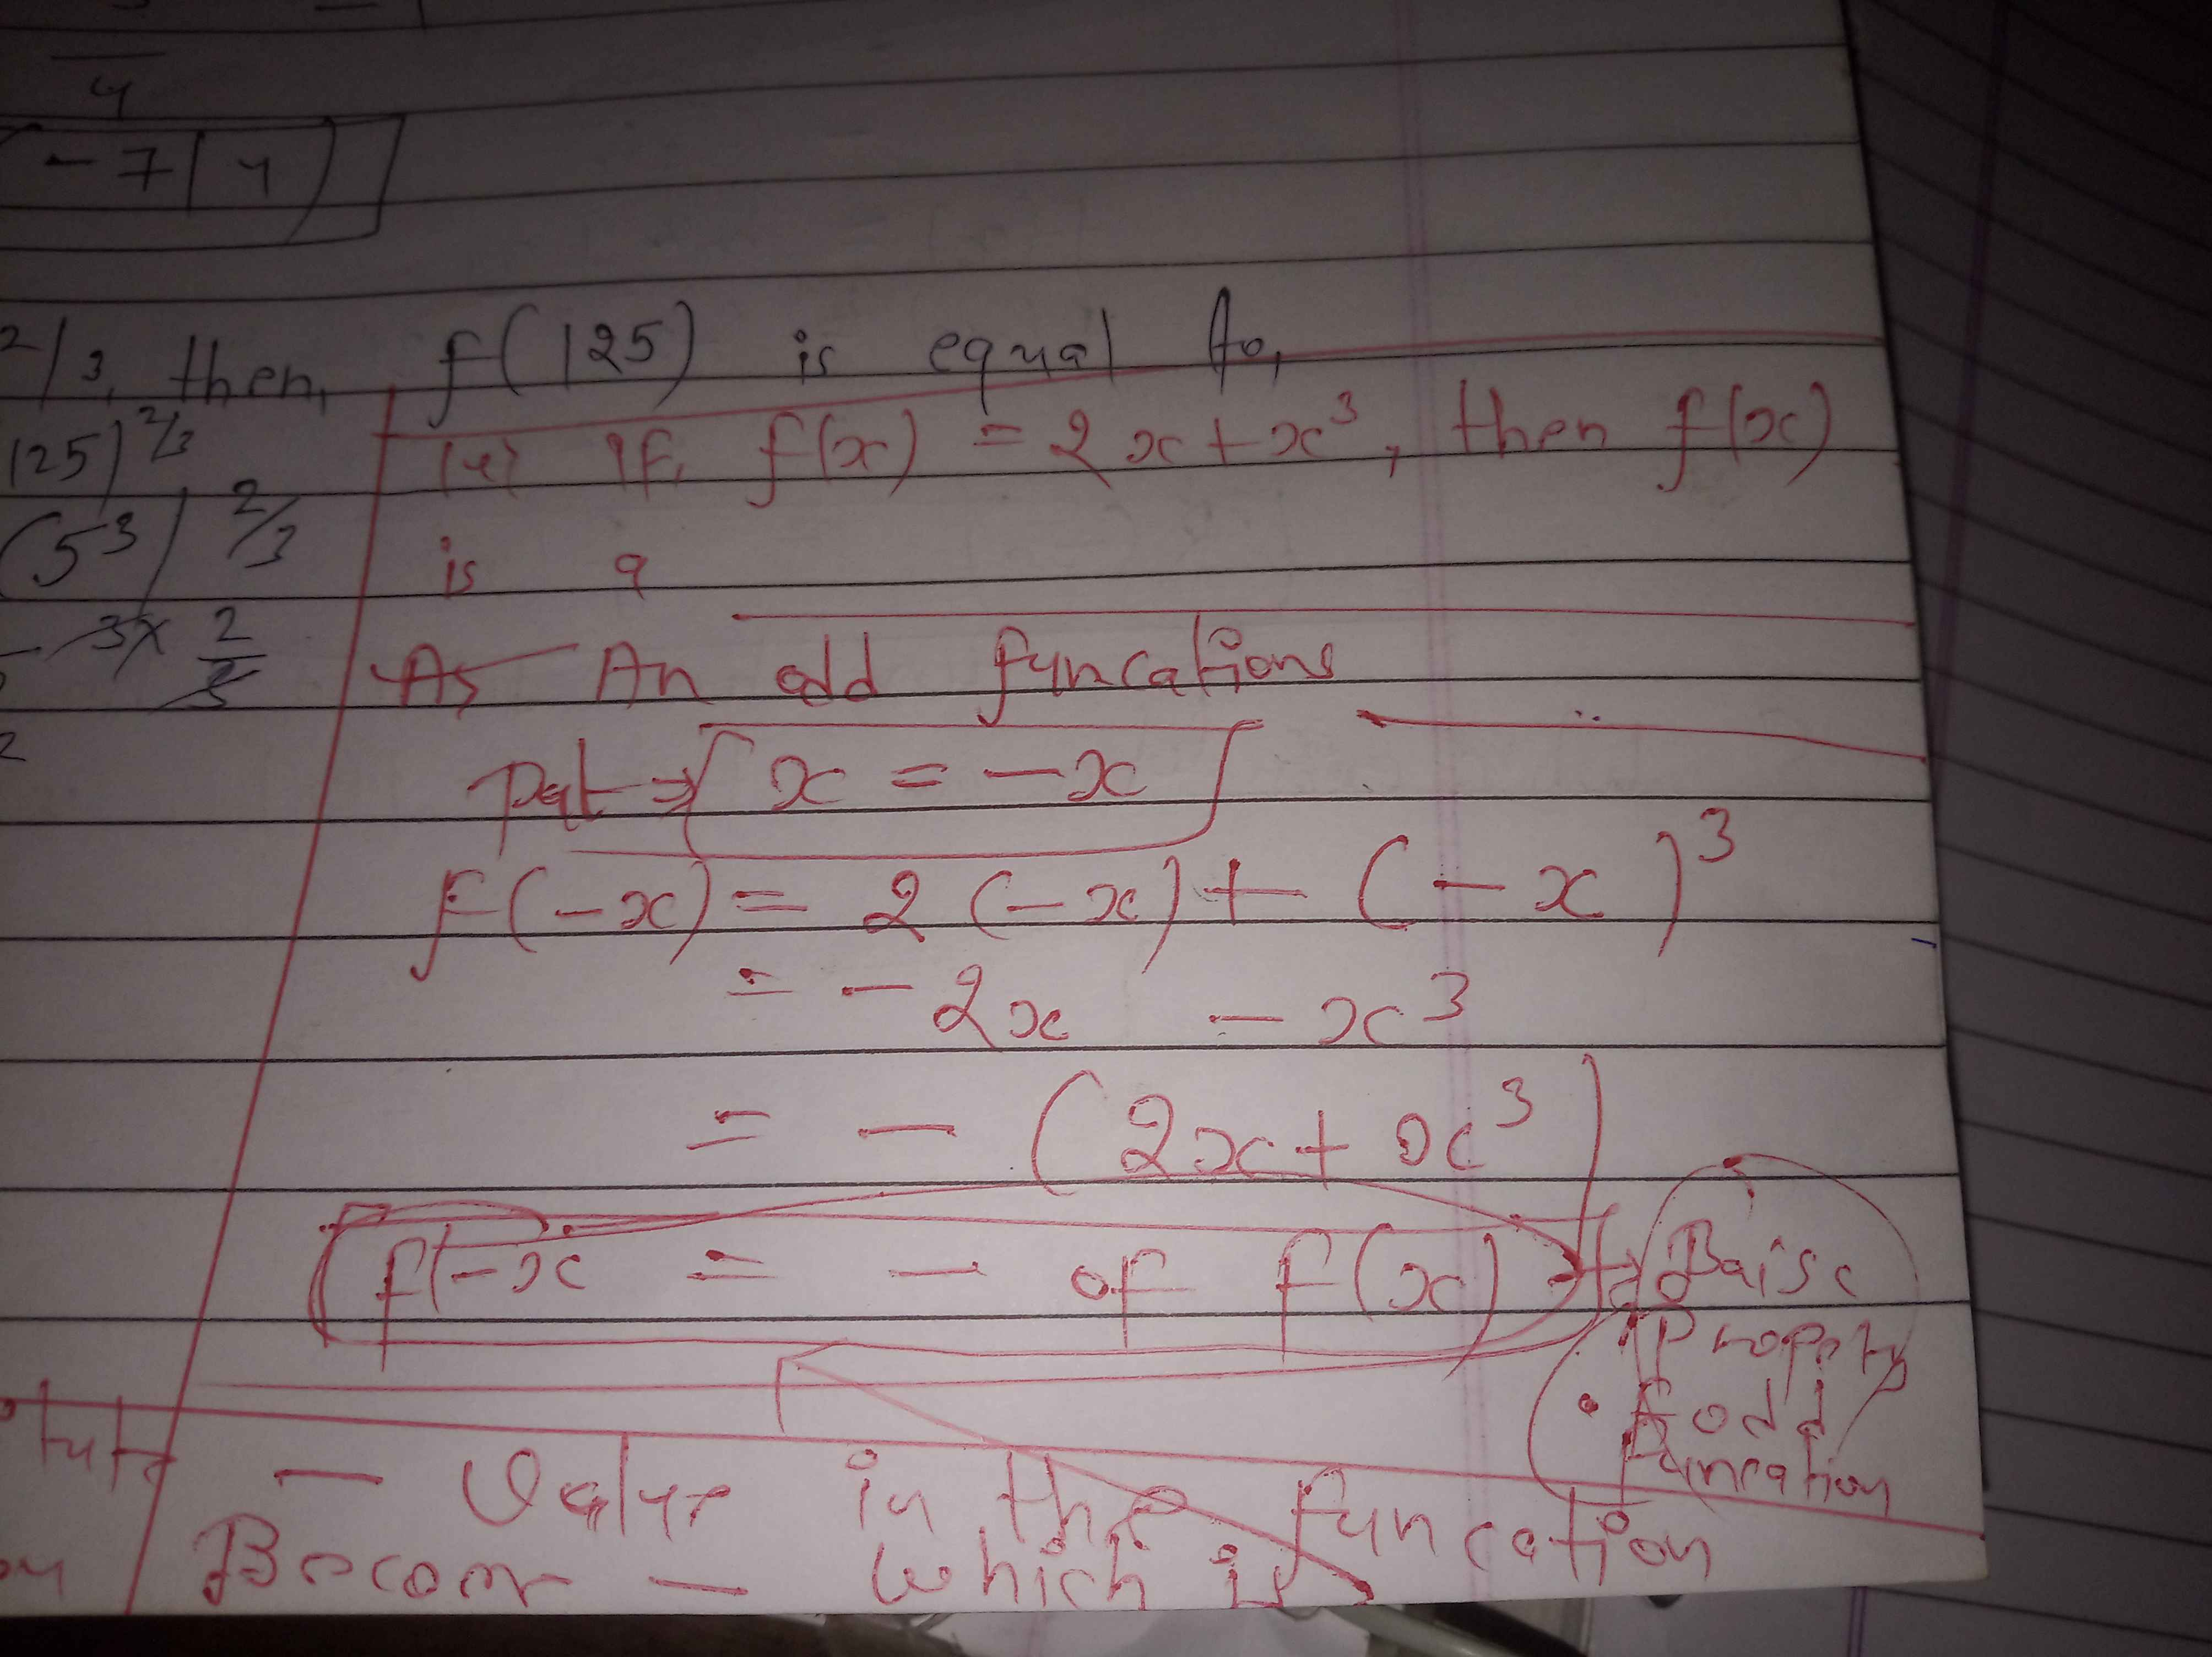 4
- 7/4)
2/3, then, f(125) is equal to,
125)^2/3
(5^3)^2/3
3x 2/3
2
(4) If, f(x) = 2x + x^3, then f(x)
is a
As An odd funcations
Put => x = -x
f(-x) = 2(-x) + (-x)^3
= - 2x - x^3
= - (2x + x^3)
f(-x = - of f(x) => Baisc
Propety
f odd
funcation
- Value in the funcation
Become - which is